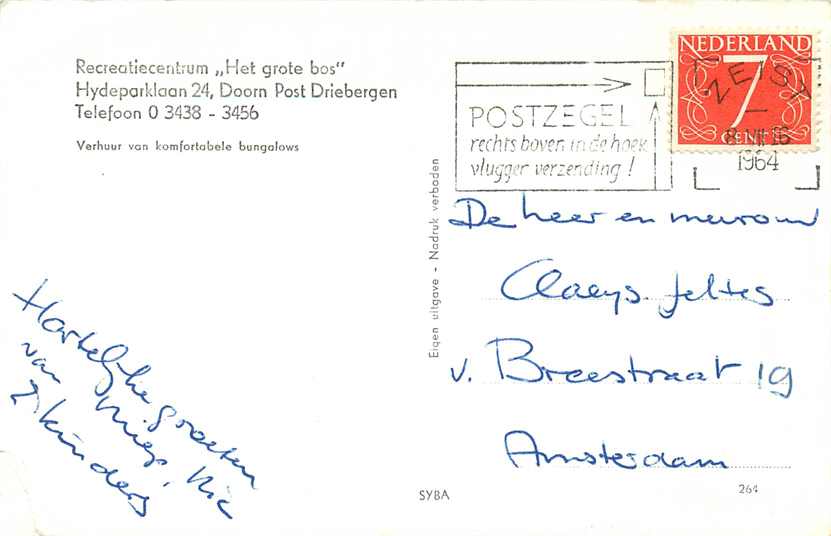 Recreatiecentrum „Het grote bos"
Hydeparklaan 24, Doorn Post Driebergen
Telefoon 0 3438 - 3456
Verhuur van komfortabele bungalows
Hartelijke groeten
van Miep, Nic
kinders
Eigen uitgave - Nadruk verboden
POSTZEGEL
rechts boven in de hoek
vlugger verzending!
NEDERLAND
7
CENT
ZEIST
1964
De heer en mevrouw
Claeys. Jeltes
v. Breestraat 19
Amsterdam
SYBA
264